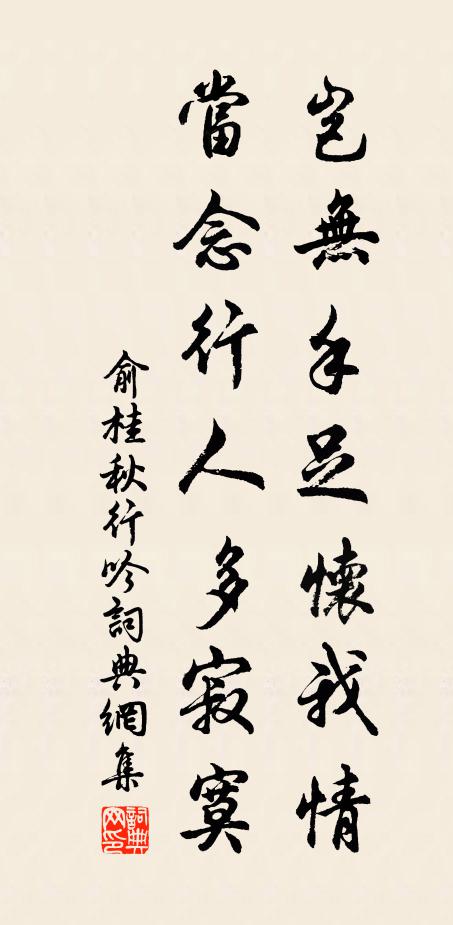 豈無手足懷我情
當念行人多寂寞
俞桂秋行吟詞典網集
詞典网印